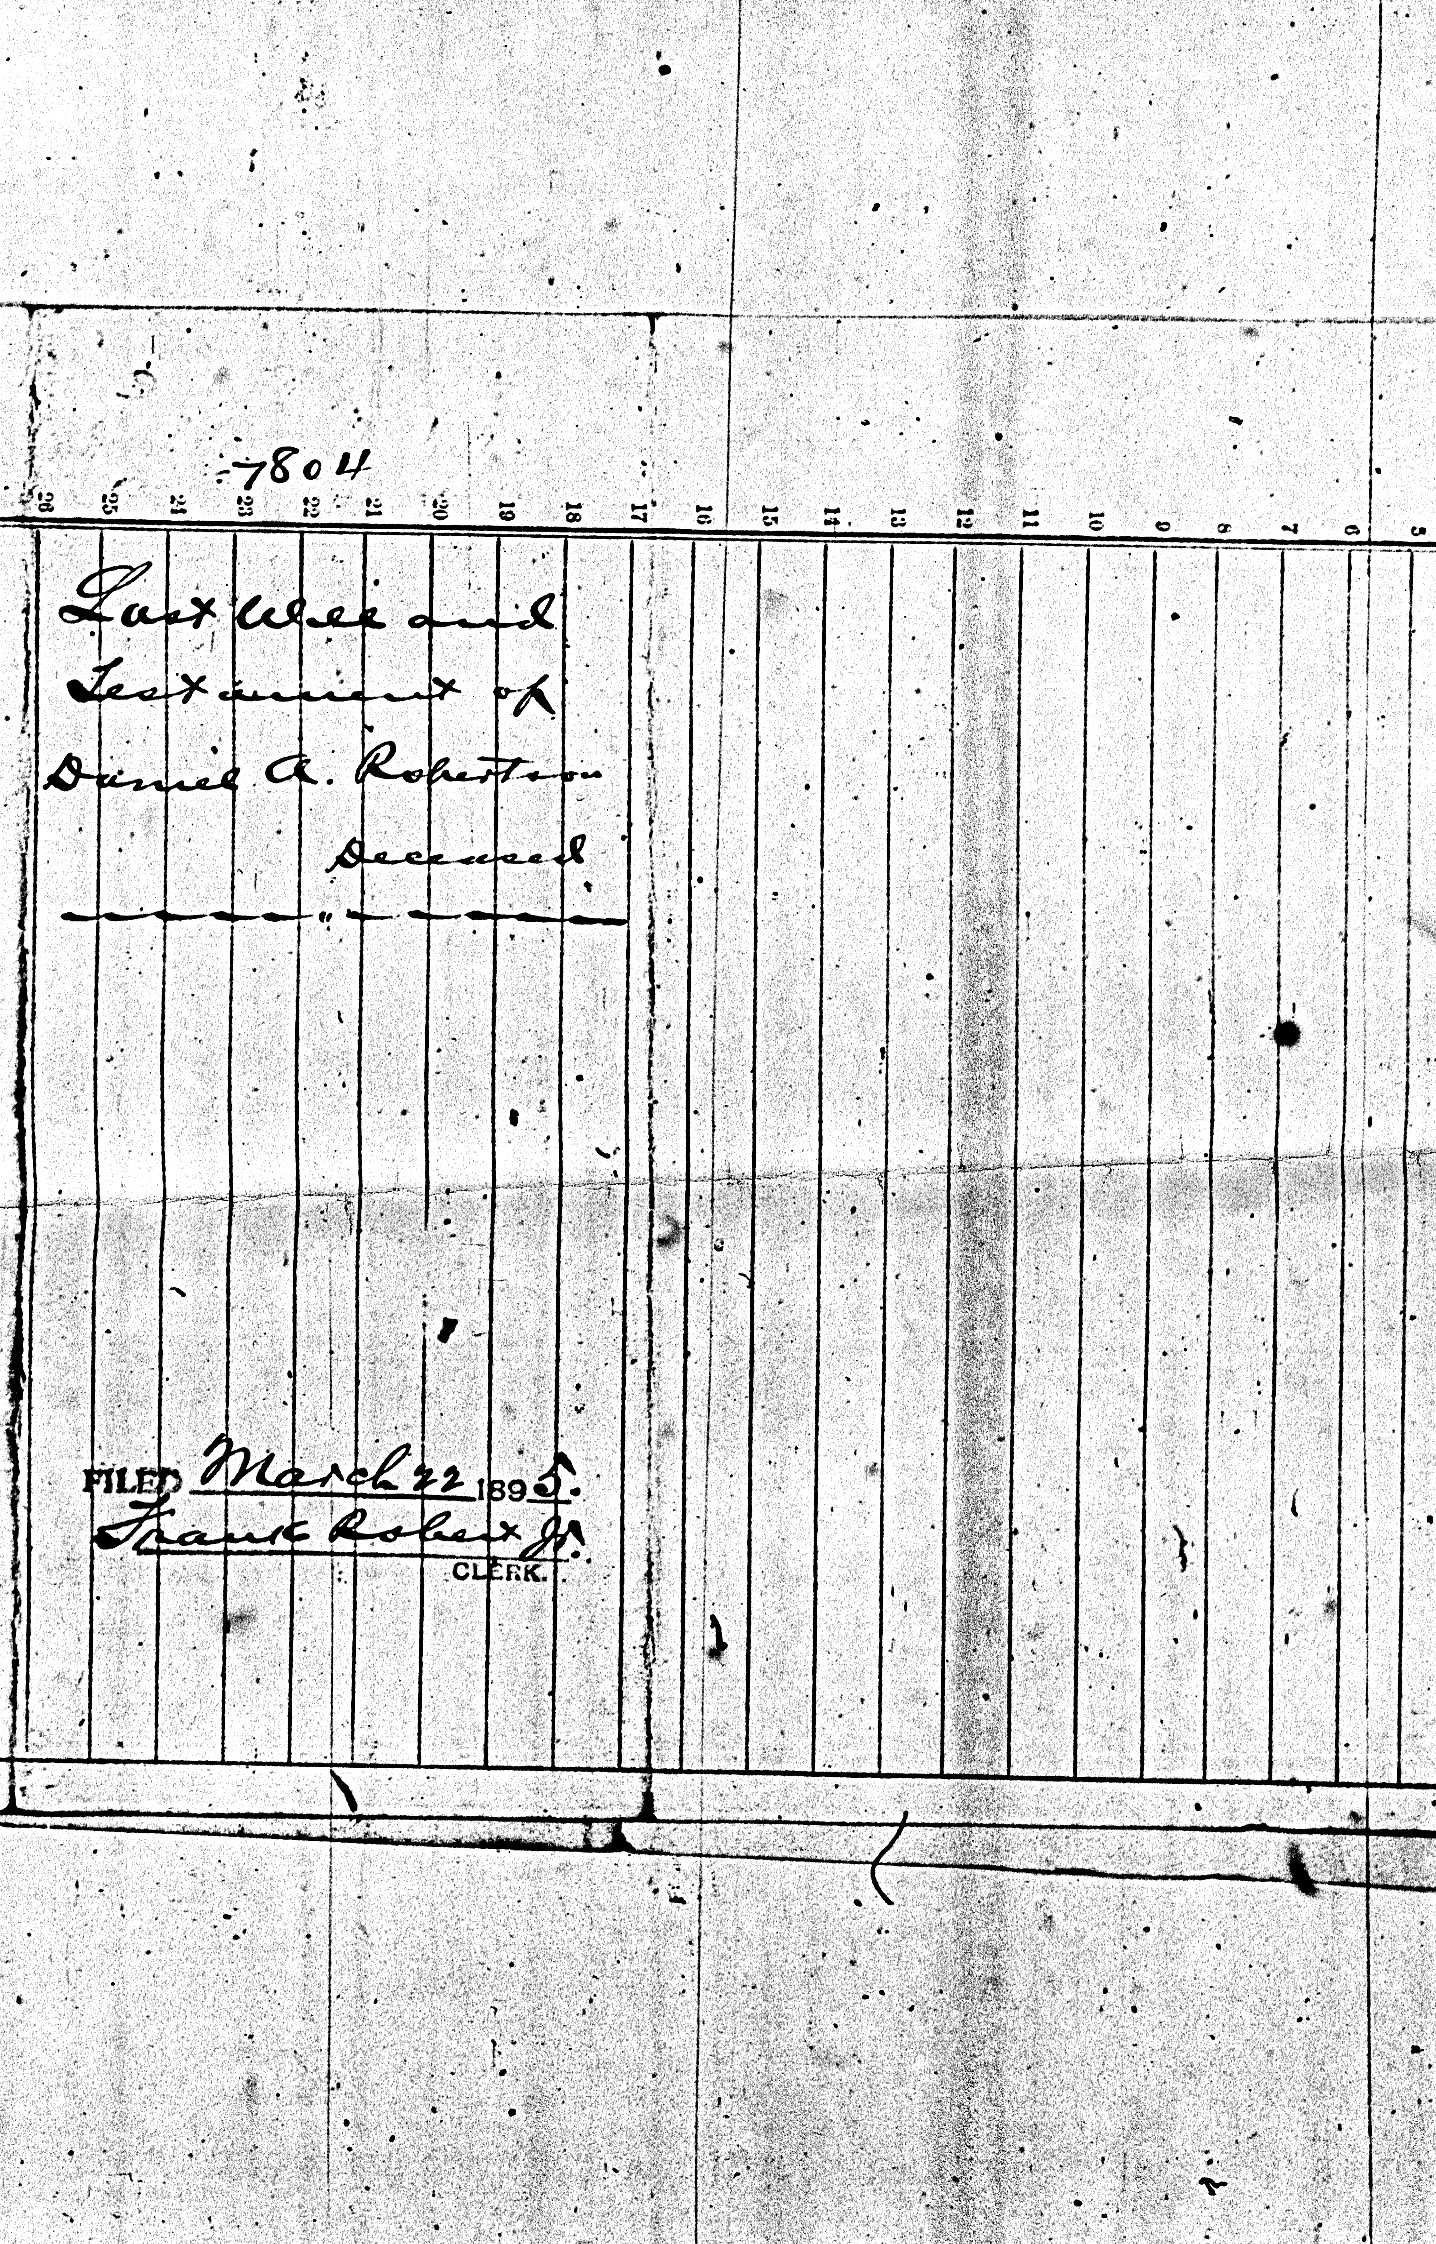 7804
26 25 24 23 22 21 20 19 18 17 16 15 14 13 12 11 10 9 8 7 6 5
Last Will and
Testament of
Daniel A. Robertson
Deceased
FILED March 22 1895.
Frank Robert Jr.
CLERK.